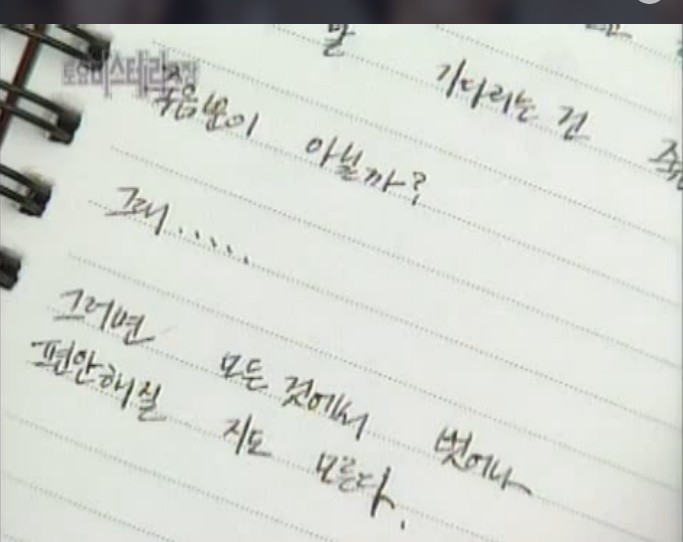 토요미스테리극장
말 기다리는 건
죽음뿐이 아닐까?
그래.....
그러면 모든 것에서 벗어나
편안해질 지도 모른다.